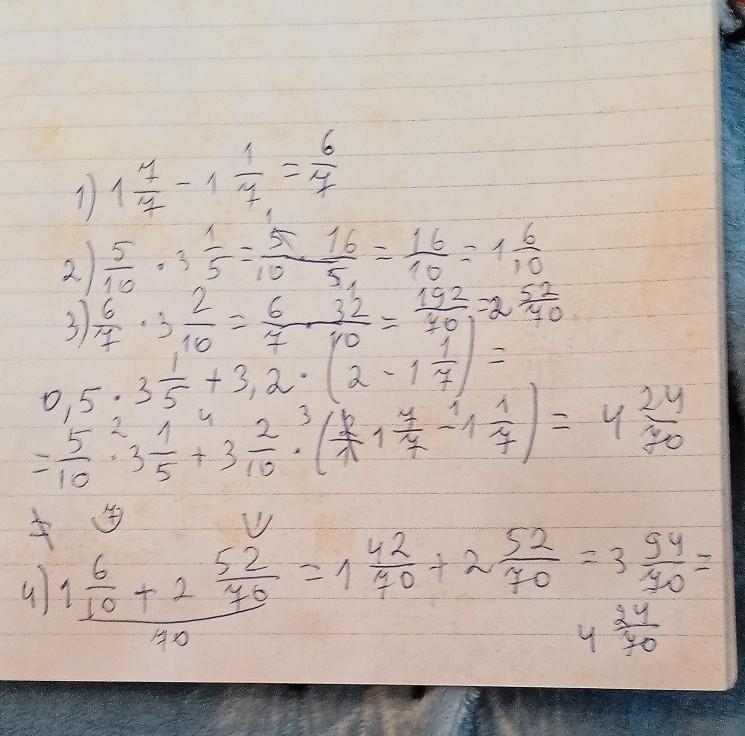 1) 1 7/7 - 1 1/7 = 6/7
2) 5/10 · 3 1/5 = 5/10 · 16/5 = 16/10 = 1 6/10
3) 6/7 · 3 2/10 = 6/7 · 32/10 = 192/70 = 2 52/70
0,5 · 3 1/5 + 3,2 · (2 - 1 1/7) =
= 5/10 · 3 1/5 + 3 2/10 · (1 7/7 - 1 1/7) = 4 24/70
4) 1 6/10 + 2 52/70 = 1 42/70 + 2 52/70 = 3 94/70 =
70
4 24/70